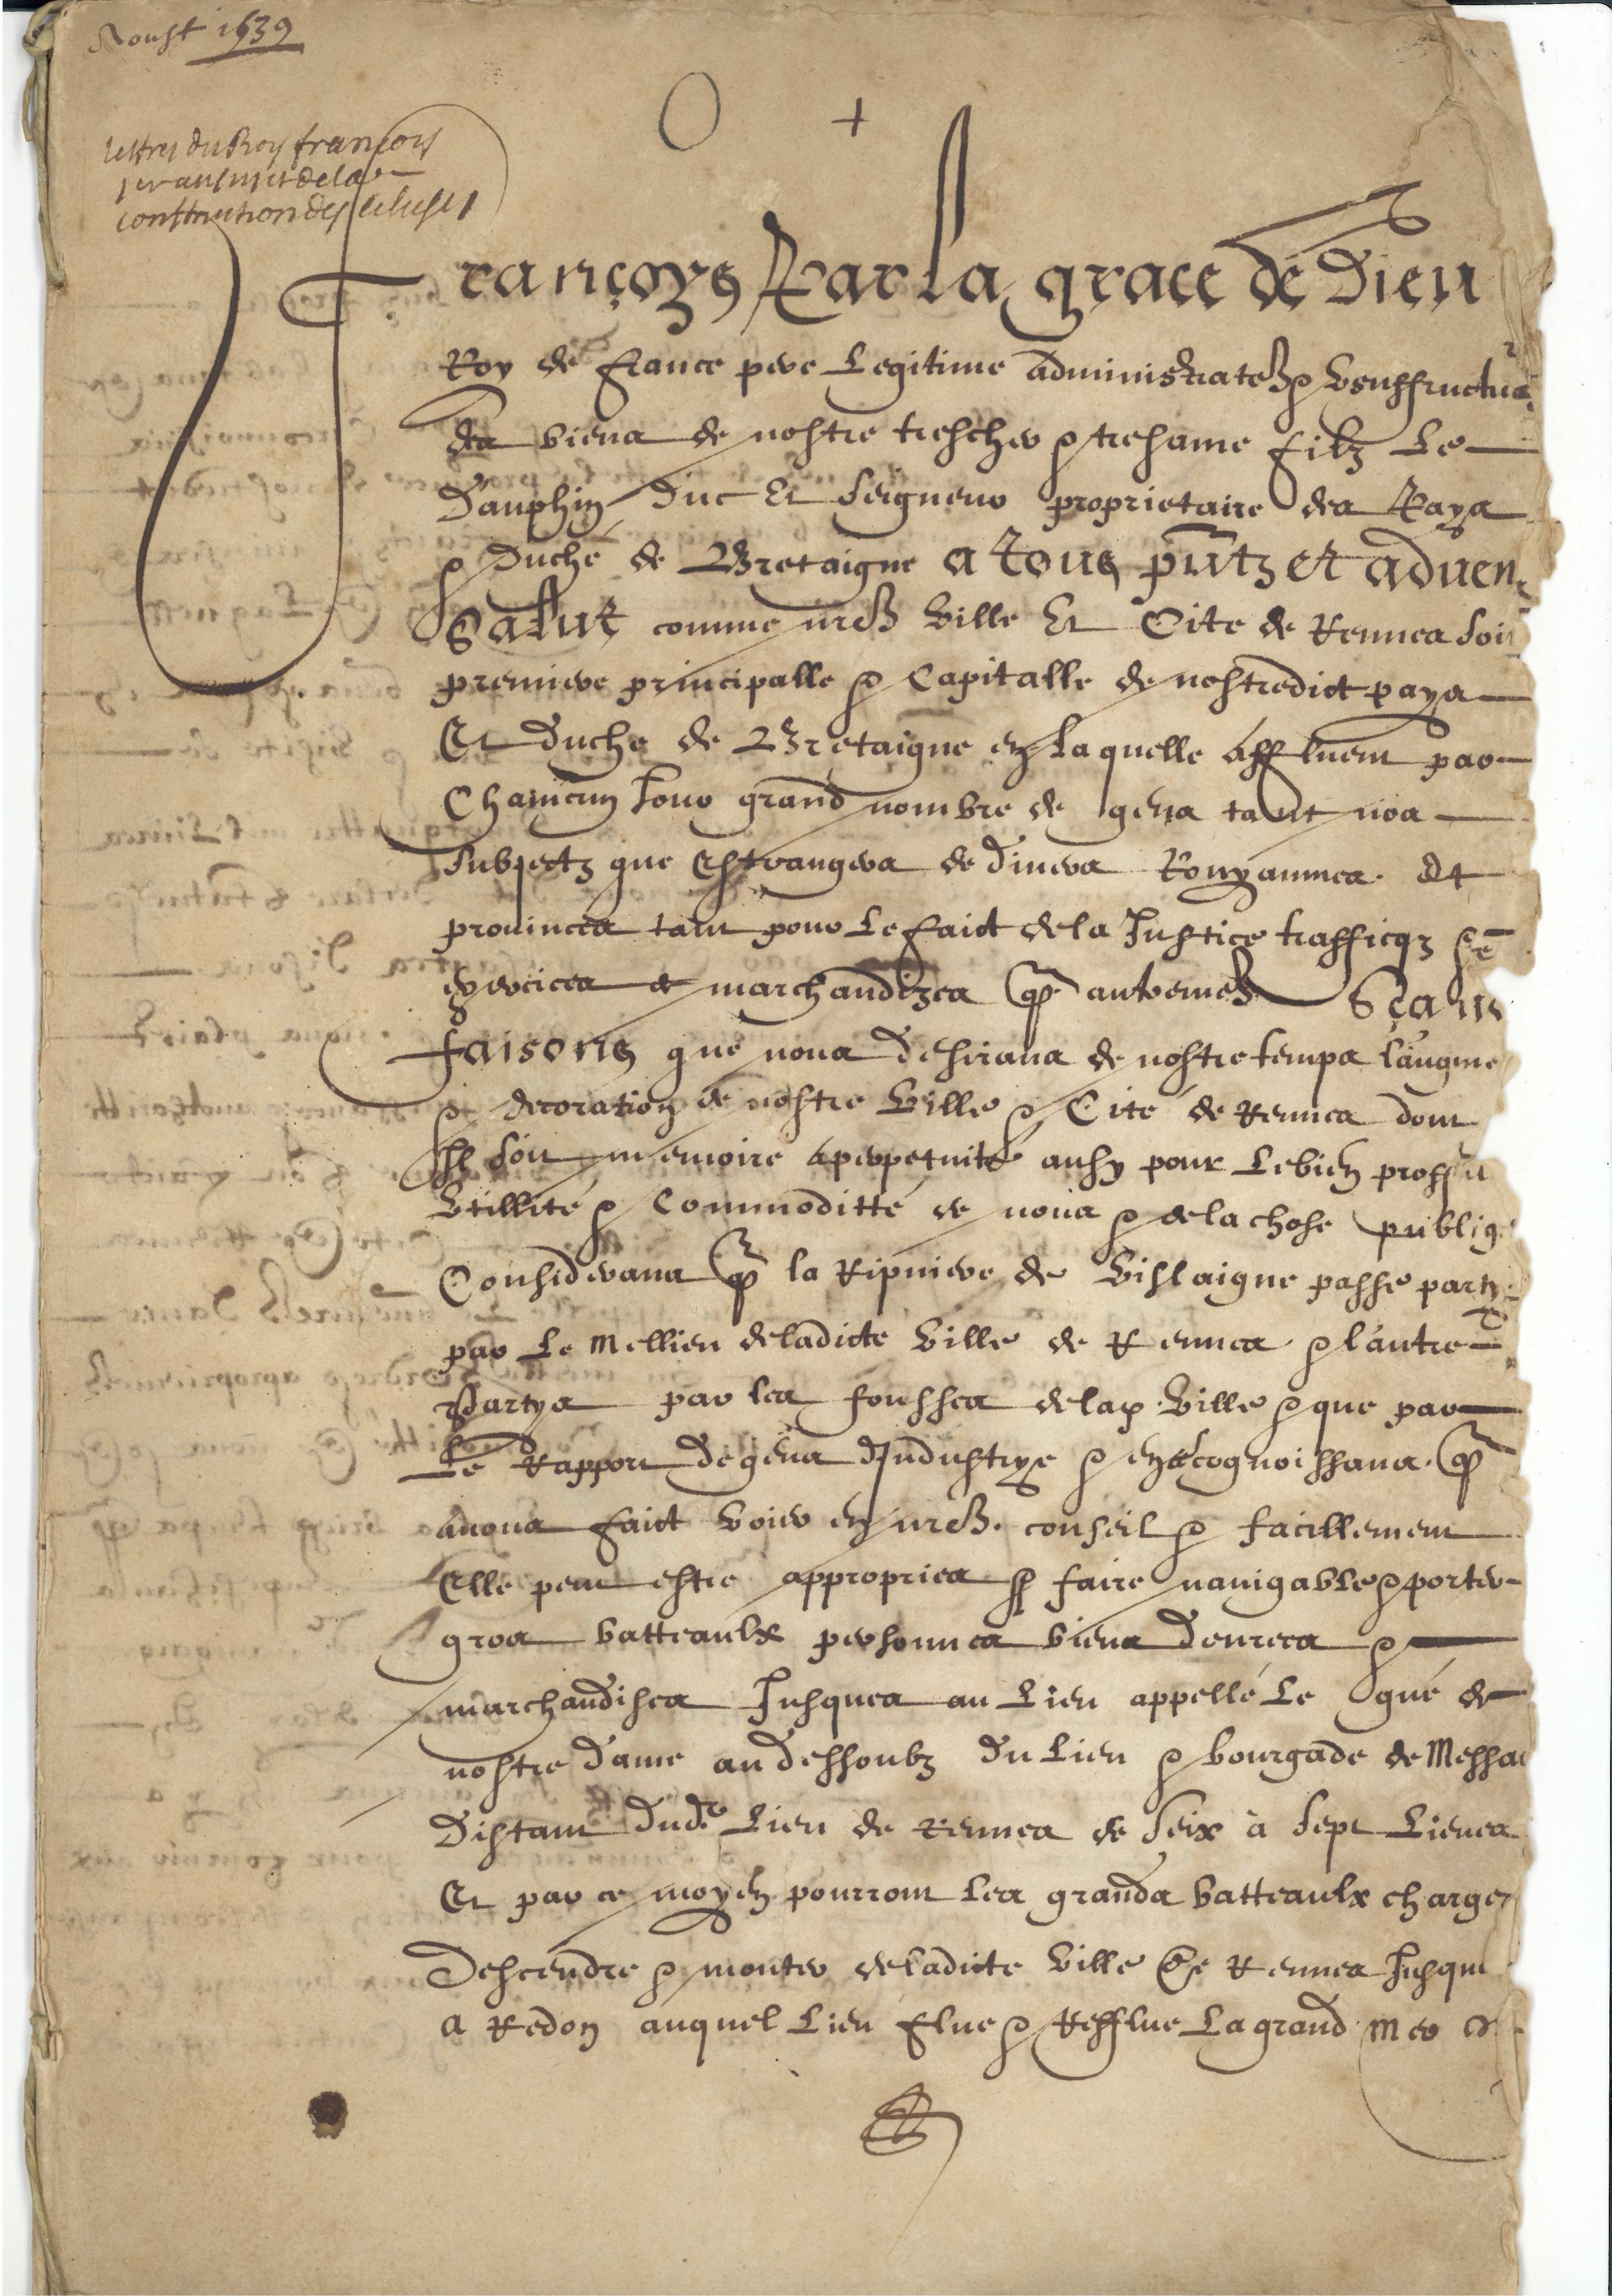 Aoust 1539
lettres du Roy françoys
premier au sujet de la
construction des escluses
Françoys Par la grace de Dieu
Roy de france pere Legitime administrateur & Usuffructua
des biens de nostre trescher & tresame filz Le
Dauphin Duc Et Seigneur proprietaire des Pays
& Duché de Bretaigne a tous pñtz et adven
Salut comme nre Ville Et Cite de Rennes soit
premiere principalle & Capitalle de nostredict pays
Et Duche de Bretaigne en laquelle affluent par
Chaincun Jour grand nombre de gens tant noz
Subjectz que Estrangers de divers Royaumes et
provinces tant pour Le faict de la Justice trafficqz
exercices et marchandizes que autremet Scavo
faisons que nous desirans de nostre temps l'augme
& decoration de nostre Ville & Cité de Rennes dont
Il soit memoire a perpetuité aussy pour Le bien proffit
Utillité & Commoditté de nous & de la chose publiq
Considerans que la Ripviere de Villaigne passe partye
par Le mellieu de ladicte Ville de Rennes & l'autre
Partye par les foussez de lad. Ville & que par
Le Rapport de gens d'Industrye & en ce cognoissans que
avons faict voir en nre conseil & facillement
Elle peut estre appropriee & faire navigable & porter
gros batteaulx personnes biens denrees &
marchandises Jusques au Lieu appellé Le gué de
nostre Dame au dessoubz du Lieu & bourgade de Messac
Distant dud. Lieu de Rennes de Seix à Sept Lieues
Et par ce moyen pourront les grands batteaulx charger
Descendre & monter de ladicte Ville de Rennes Jusqu
a Redon auquel Lieu flue & Refflue La grand mer